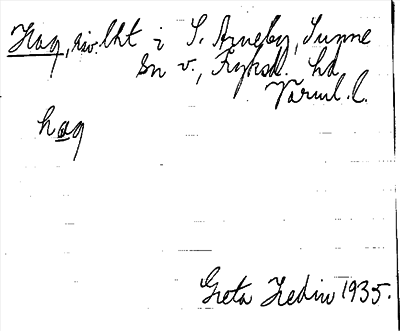 Hag, riv. lht i S. Arneby, Sunne
sn v., Fryksd. hd
Värml. l.
hag
Greta Hedin 1935.